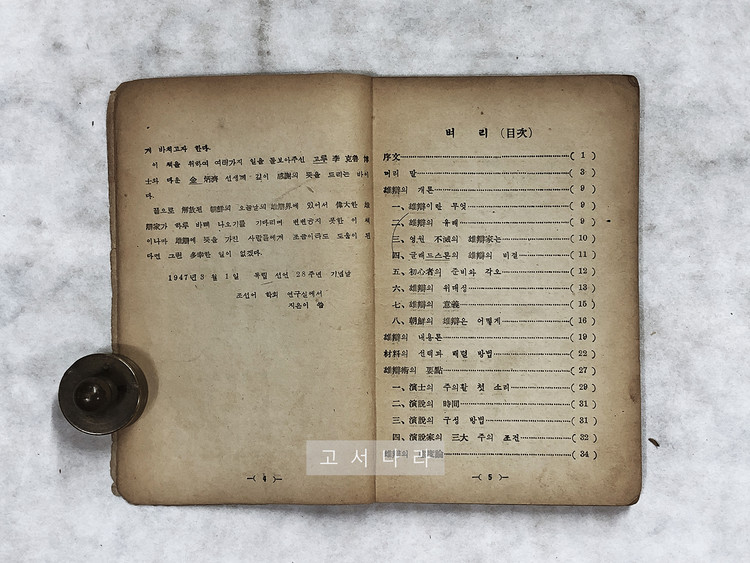 게 바치고자 한다.
이 책을 위하여 여러가지 일을 돌보아주신 고루 李 克魯 博
士와 따온 金 炳濟 선생께 깊이 感謝의 뜻을 드리는 바이
다.
끝으로 解放된 朝鮮의 오늘날의 雄辯界에 있어서 偉大한 雄
辯家가 하루 바삐 나오기를 기다리며 변변ㅎ지 못한 이 책
이나마 雄辯에 뜻을 가진 사람들에게 조금이라도 도움이 된
다면 그런 多幸한 일이 없겠다.
1947년 3월 1일 독립 선언 28주년 기념날
조선어 학회 연구실에서
지은이 씀
—( 4 )—
벼 리 (目次)
序文( 1 )
머리 말( 3 )
雄辯의 개론( 9 )
一、雄辯이란 무엇( 9 )
二、雄辯의 유래( 9 )
三、영원 不滅의 雄辯家는( 10 )
四、글래드스톤의 雄辯의 비결( 11 )
五、初心者의 준비와 각오( 12 )
六、雄辯의 위대성( 13 )
七、雄辯의 意義( 15 )
八、朝鮮의 雄辯은 어떻게( 16 )
雄辯의 내용론( 19 )
材料의 선택과 배렬 방법( 22 )
雄辯術의 要點( 27 )
一、演士의 주의할 첫 소리( 29 )
二、演說의 時間( 31 )
三、演說의 구성 방법( 31 )
四、演說家의 三大 주의 조건( 32 )
雄辯의 ( 34 )
—( 5 )—
고서나라